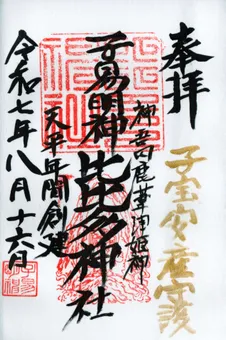 奉拝
子宝安産守護
神吾田鹿葦津姫神
子易明神
比比多神社
天平年間創建
令和七年八月十六日